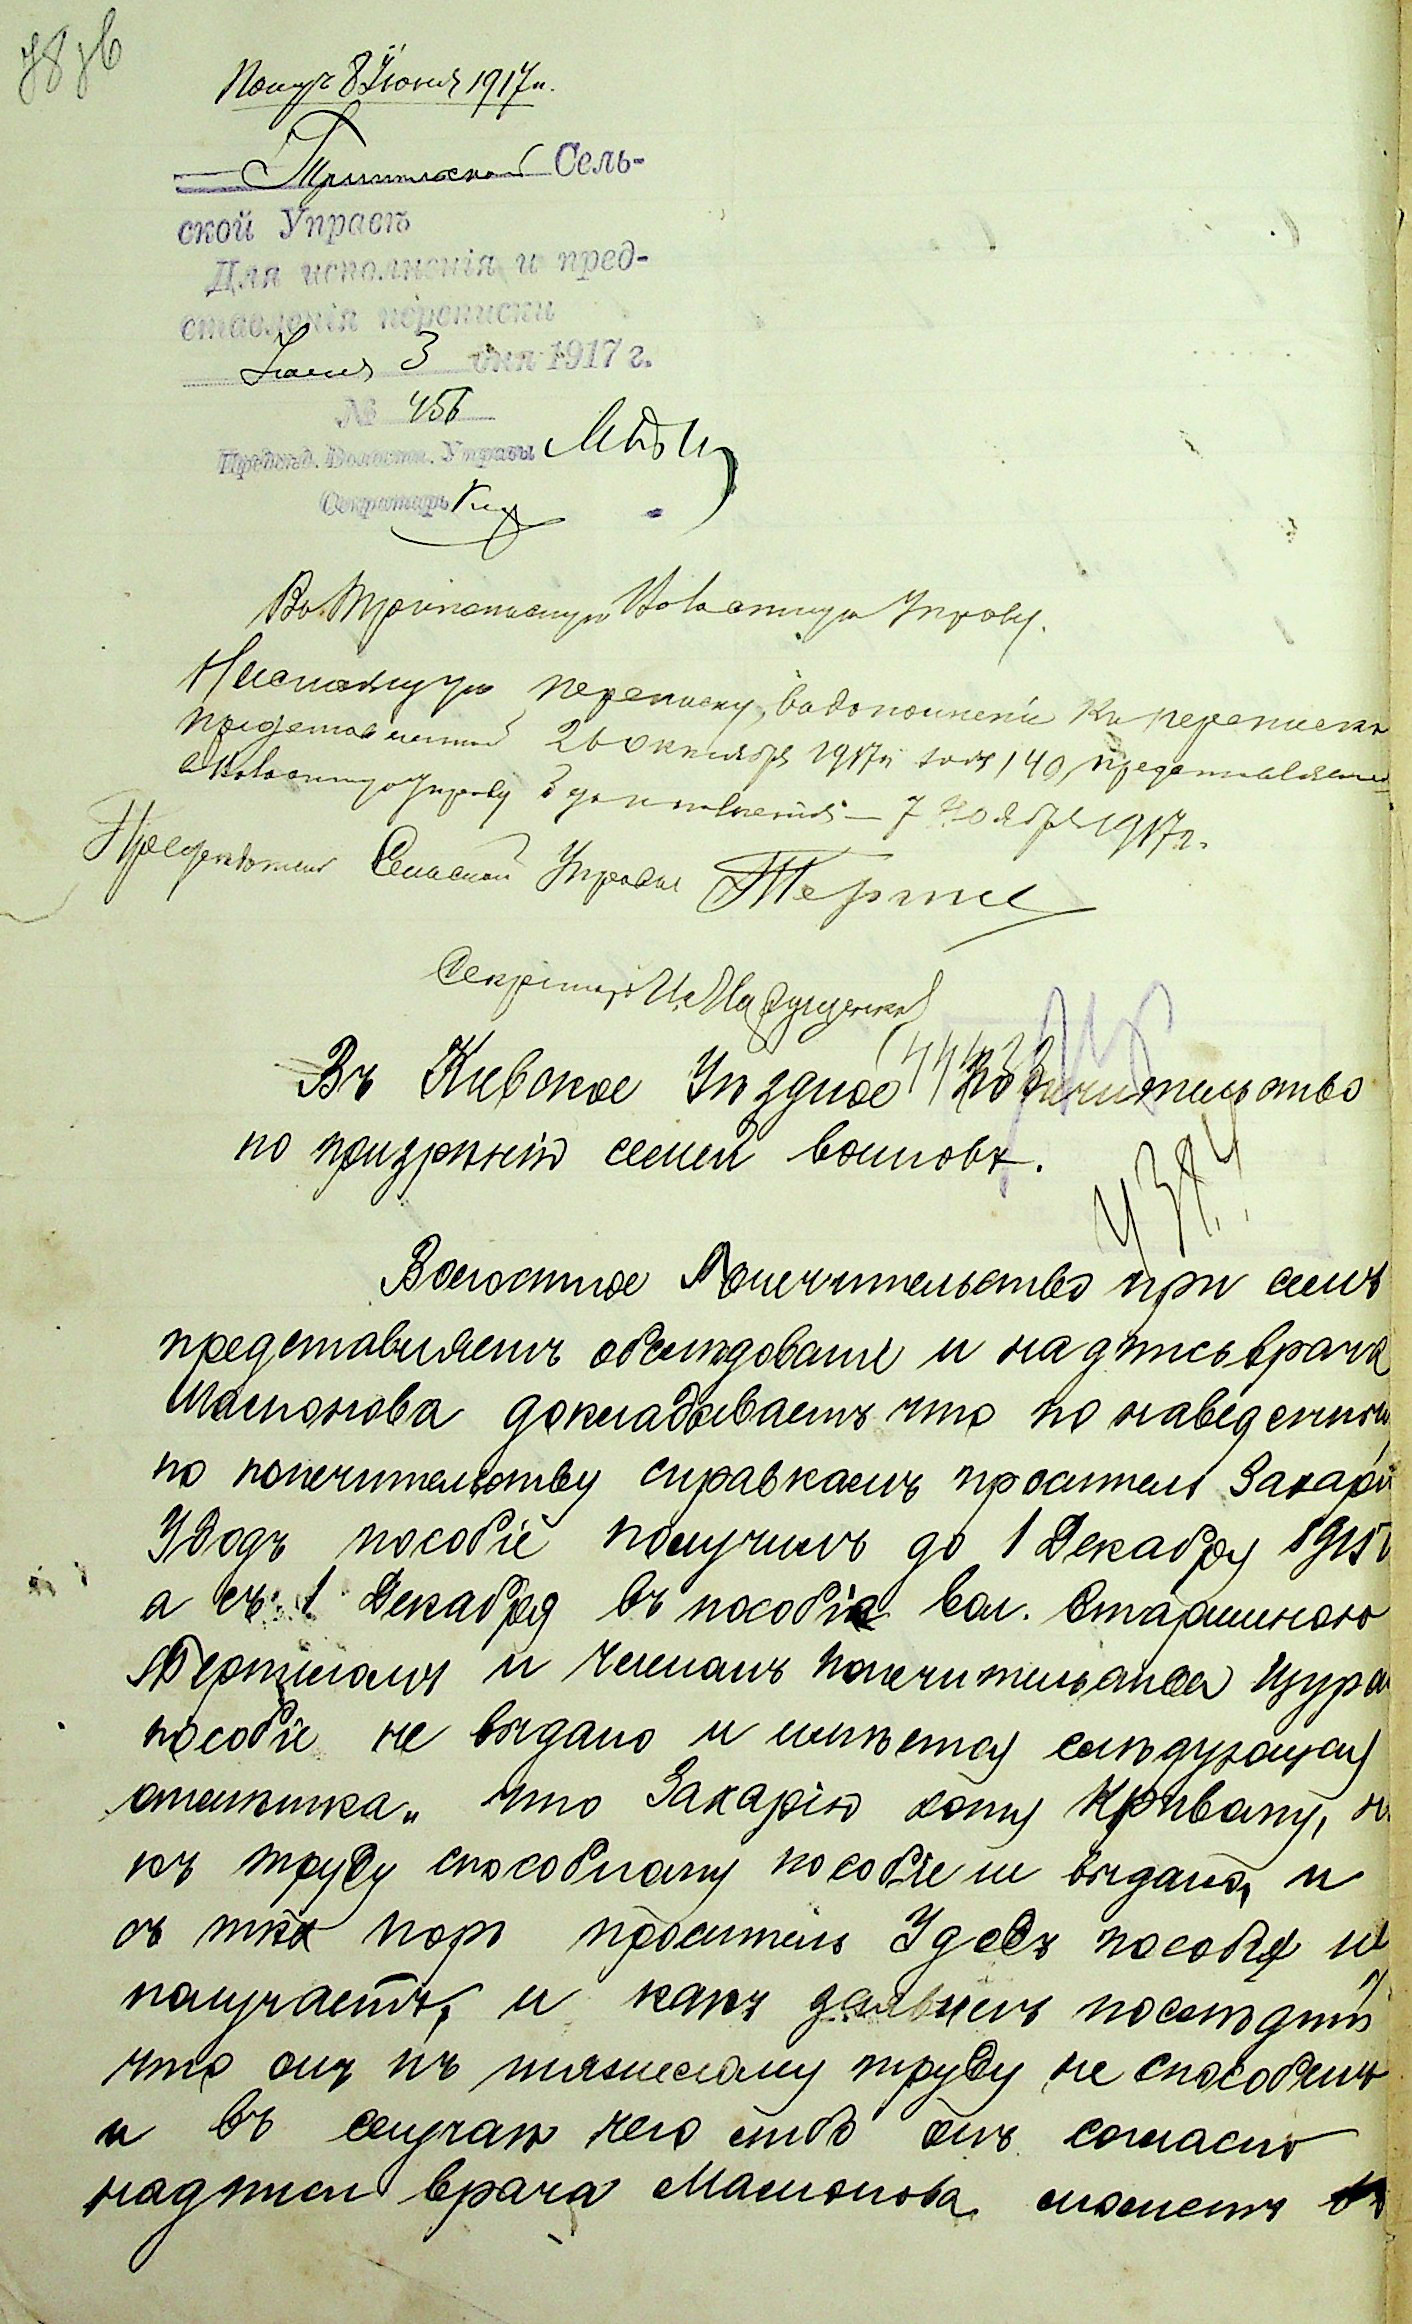 Получ 8 Іюня 1917 г.
Трипольской Сель-
ской Управѣ
Для исполненія и пред-
ставленія переписки
Іюня 3 дня 1917 г.
№ 456
Предсѣд. Волостн. Управы
Секретарь
Въ Трипольскую Волостную Управу.
переписку, въ дополненіе къ перепискѣ
представленной 26 октября 1917 г. за № 140, представляется
въ Волостную Управу 7 Ноября 1917 г.
Предсѣдатель Сельской Управы
Секретарь
Въ Кіевское Уѣздное Попечительство
по призрѣнію семей воиновъ.
4384
Волостное Попечительство при семъ
представляетъ обслѣдованіе и надпись врача
Масюкова докладываетъ что по наведеннымъ
по попечительству справкамъ проситель Захарій
Удодъ пособіе получилъ до 1 Декабря 1915
а съ 1 Декабря въ пособіи вол. Старшиною
и членомъ попечительства Щуромъ
пособіе не выдано и имѣется слѣдующая
отмѣтка „ что Захарію хотя Кривому, но
къ труду способному пособіе не выдано, и
съ тѣхъ поръ проситель Удодъ пособія не
получаетъ, и какъ заявилъ послѣдній
что онъ къ тяжелому труду не способенъ
и въ случаѣ чего либо онъ согласно
надписи врача Масюкова можетъ